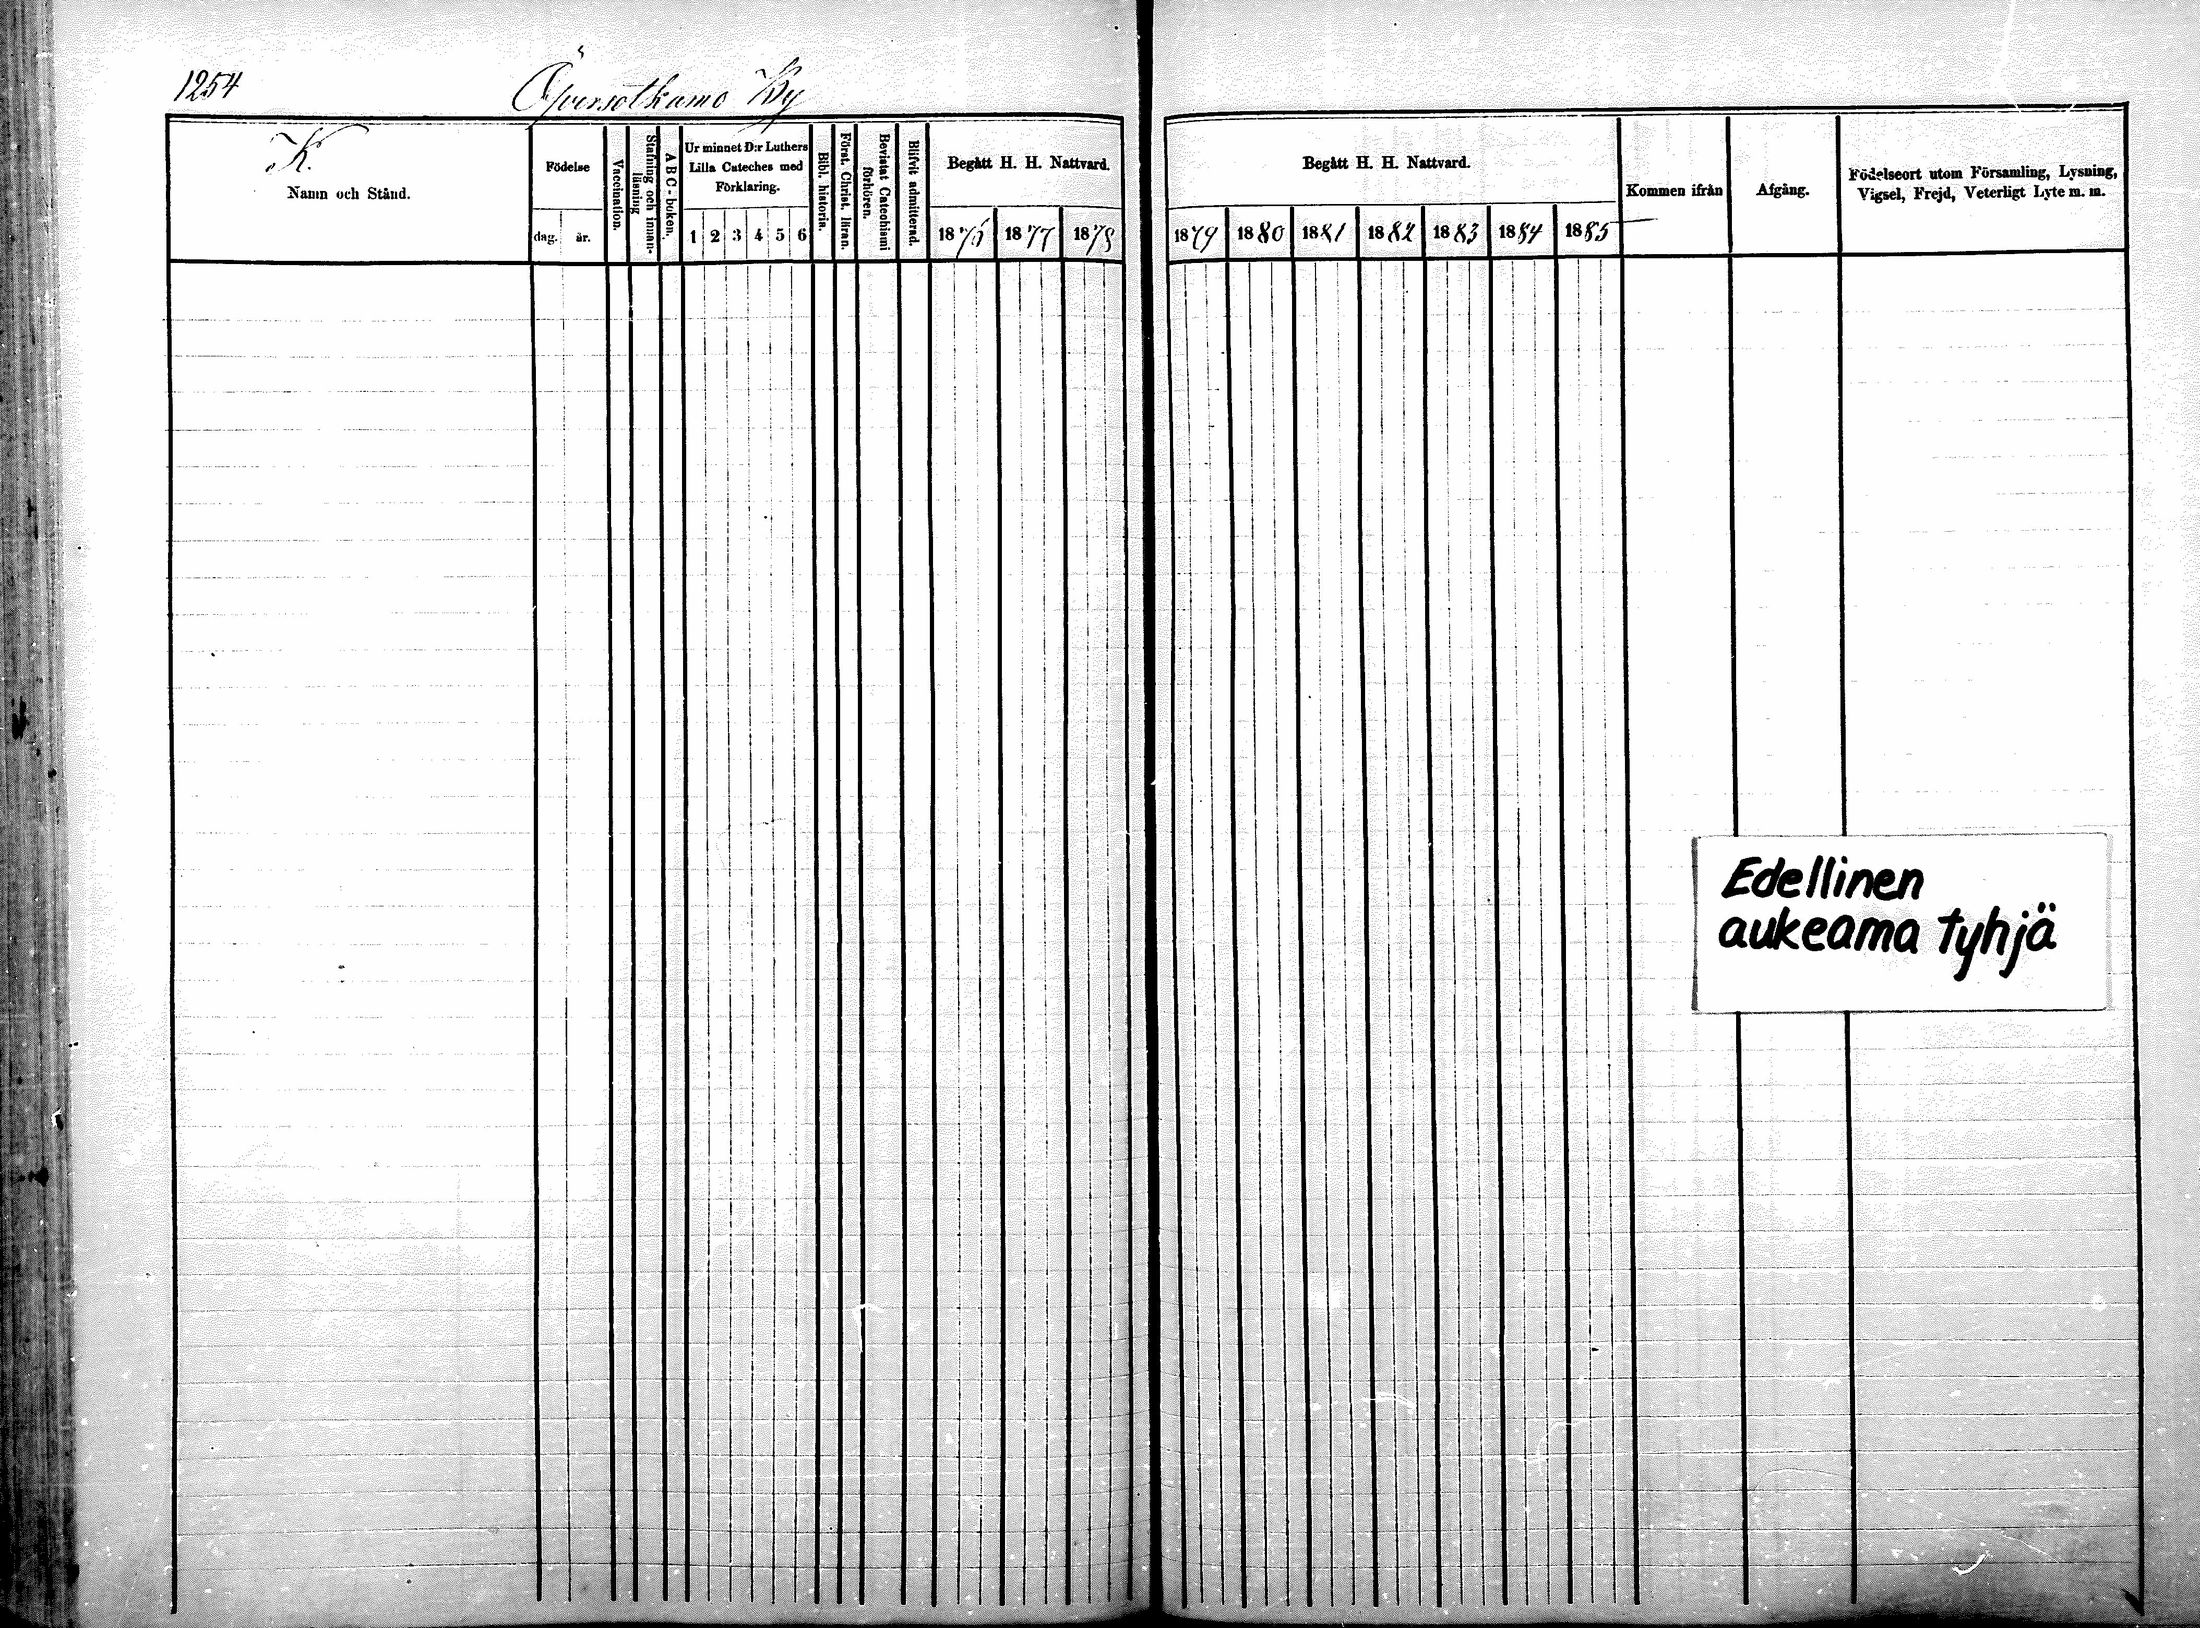 1254
Öfversotkamo By
K.
Namn och Stånd.
Födelse
dag. år.
Vaccination.
Stafning och innan-
läsning
ABC-boken.
Ur minnet D:r Luthers
Lilla Cateches med
Förklaring.
1 2 3 4 5 6
Bibl. historia.
Först. Christ. läran.
Bevistat Catechismi
förhören.
Blifvit admitterad.
Begått H. H. Nattvard.
1876 1877 1878
Begått H. H. Nattvard.
1879 1880 1881 1882 1883 1884 1885
Kommen ifrån
Afgång.
Födelseort utom Församling, Lysning,
Vigsel, Frejd, Veterligt Lyte m. m.
Edellinen
aukeama tyhjä